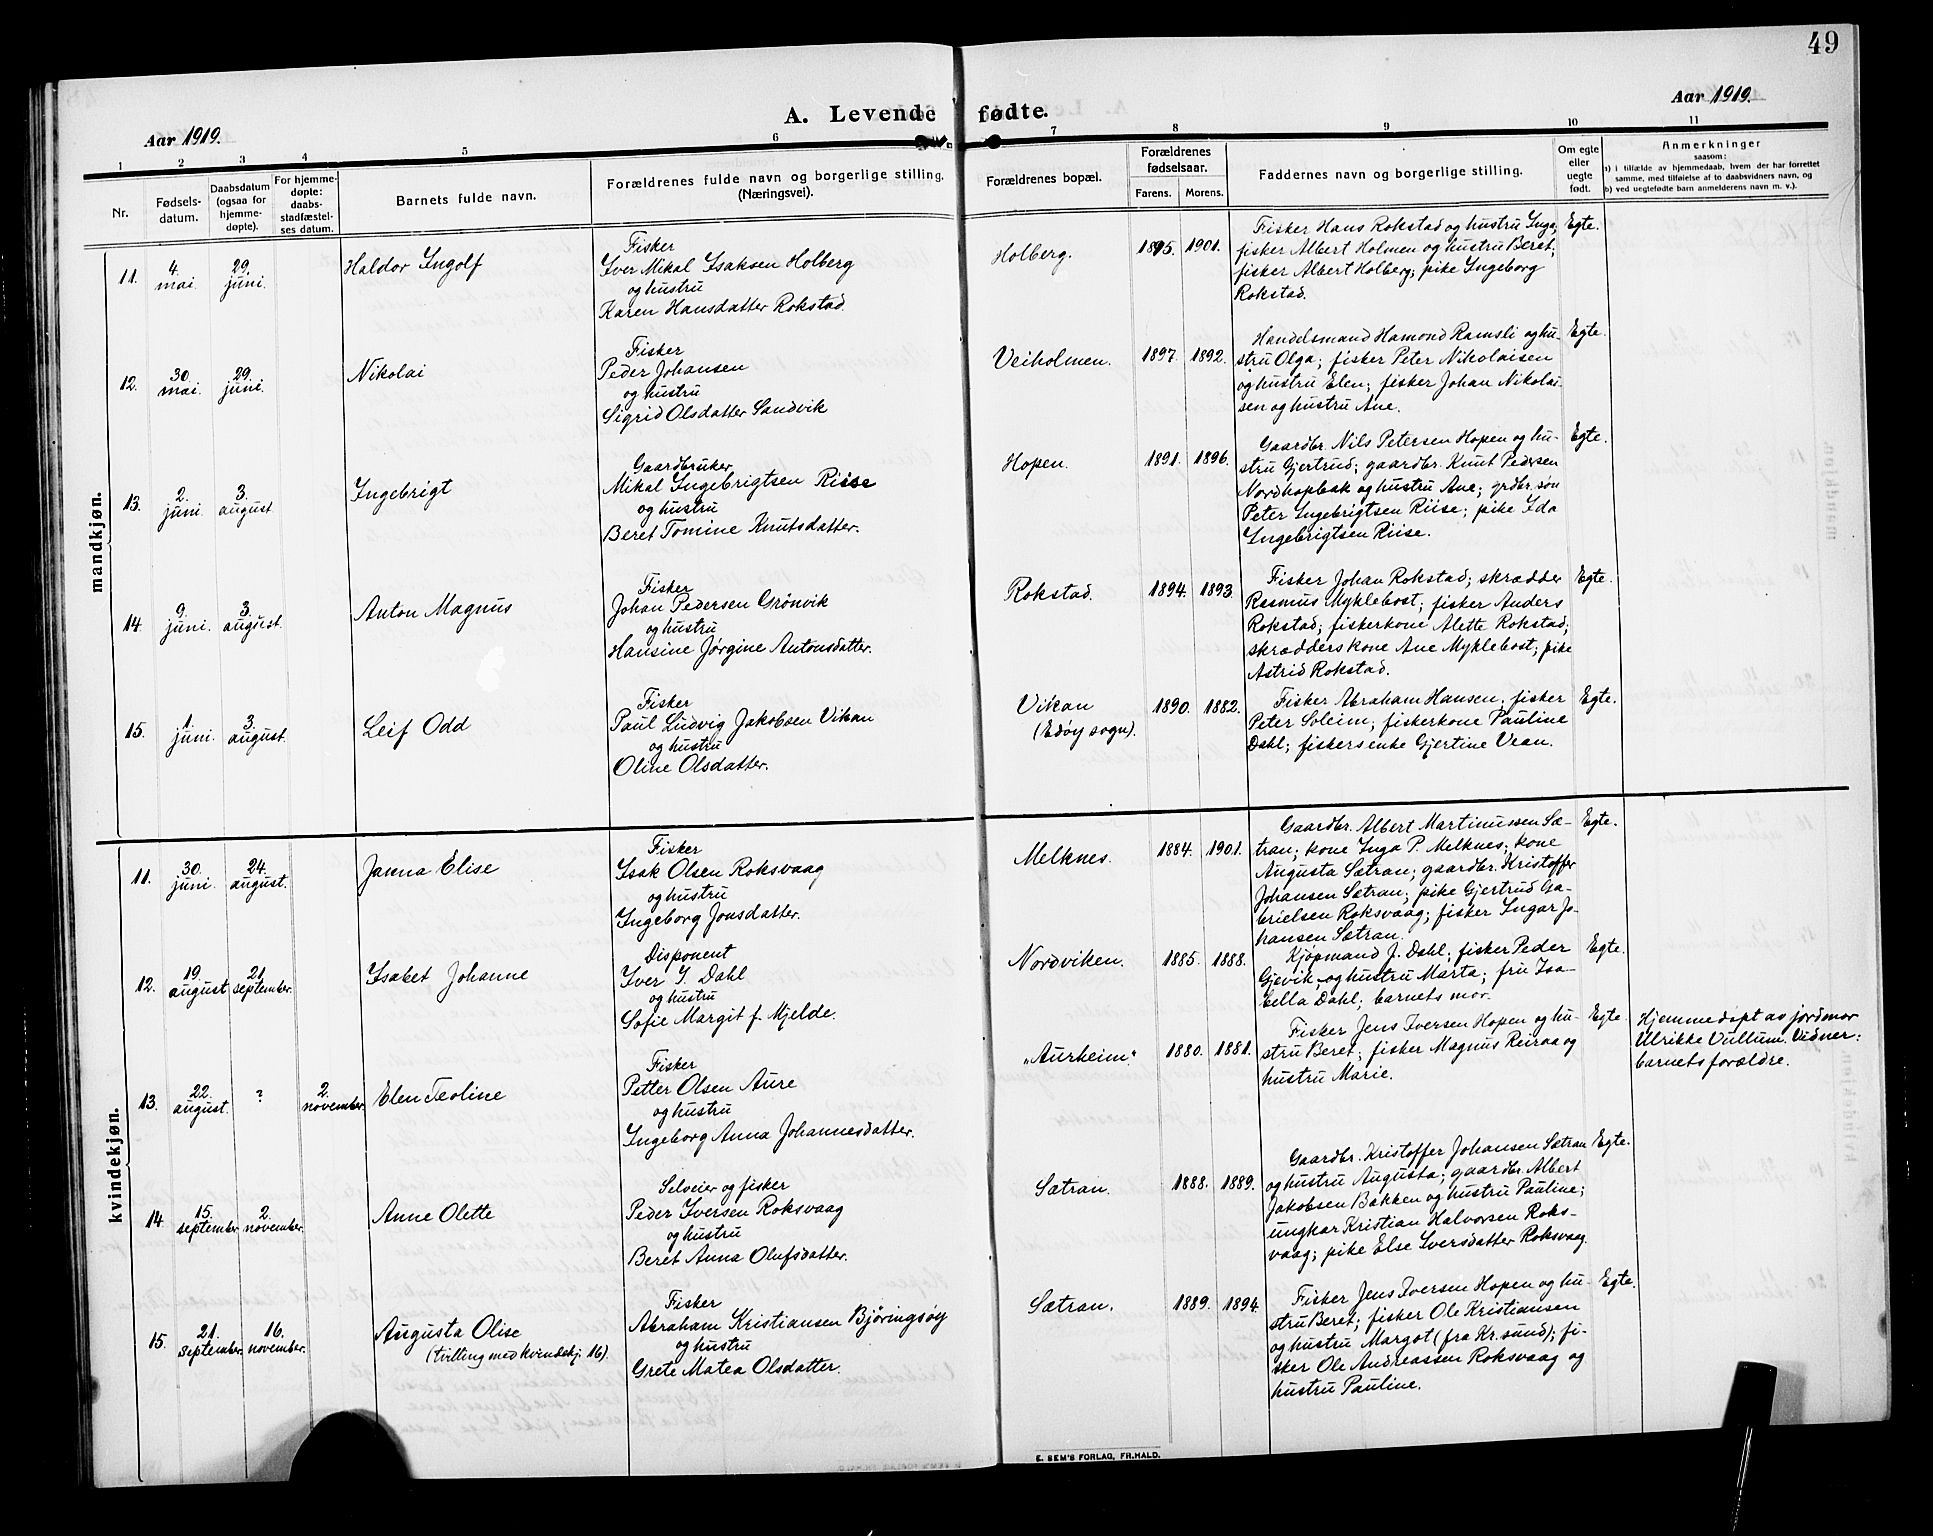 49
A. Levende fødte.
Aar 1919.
Aar 1919.
1 2 3 4 5 6 7 8 9 10 11
Nr.
Fødsels-
datum.
Daabsdatum
(ogsaa for
hjemme-
døpte).
For hjemme-
døpte:
daabs-
stadfæstel-
ses datum.
Barnets fulde navn.
Forældrenes fulde navn og borgerlige stilling.
(Næringsvei).
Forældrenes bopæl.
Forældrenes
fødselsaar.
Farens. Morens.
Faddernes navn og borgerlige stilling.
Om egte
eller
uegte
født.
Anmerkninger
saasom:
a) i tilfælde av hjemmedaab, hvem der har forrettet
samme, med tilføielse af to daabsvidners navn, og
b) ved uegtefødte barn anmelderens navn m. v.).
mandkjøn.
11.
4.
mai.
29.
juni.
Haldor Ingolf
Fisker
Iver Mikal Isaksen Holberg
og hustru
Karen Hansdatter Rokstad.
Holberg.
1895. 1901.
Fisker Hans Rokstad og hustru Inga;
fisker Albert Holmen og hustru Beret;
fisker Albert Holberg; pike Ingeborg
Rokstad.
Egte.
12.
30.
mai.
29.
juni.
Nikolai
Fisker
Peder Johansen
og hustru
Sigrid Olsdatter Sandvik
Veiholmen.
1897. 1892.
Handelsmand Hamond Ramsli og hu-
stru Olga; fisker Peter Nikolaisen
og hustru Elen; fisker Johan Nikolai-
sen og hustru Ane.
Egte.
13.
2.
juni.
3.
august.
Ingebrigt
Gaardbruker
Mikal Ingebrigtsen Riise
og hustru
Beret Tomine Knutsdatter.
Hopen.
1891. 1896.
Gaardbr. Nils Petersen Hopen og hu-
stru Gjertrud; gaardbr. Knut Pedersen
Nordhopbak og hustru Ane; grdbr. søn
Peter Ingebrigtsen Riise; pike Ida
Ingebrigtsen Riise.
Egte.
14.
9.
juni.
3.
august.
Anton Magnus
Fisker
Johan Pedersen Grønvik
og hustru
Hansine Jørgine Antonsdatter.
Rokstad.
1894. 1893.
Fisker Johan Rokstad; skrædder
Rasmus Myklebost; fisker Anders
Rokstad; fiskerkone Alette Rokstad;
skrædders kone Ane Myklebost; pike
Astrid Rokstad.
Egte.
15.
1.
juni.
3.
august.
Leif Odd
Fisker
Paul Ludvig Jakobsen Vikan
og hustru
Oline Olsdatter.
Vikan
(Edøy sogn).
1890. 1882.
Fisker Abraham Hansen; fisker
Peter Soleim; fiskerkone Pauline
Dahl; fiskersenke Gjertine Vean.
Egte.
kvindekjøn.
11.
30.
juni.
24.
august.
Janna Elise
Fisker
Isak Olsen Roksvaag
og hustru
Ingeborg Jonsdatter.
Melknes.
1884. 1901.
Gaardbr. Albert Martinussen Sæ-
tran; kone Inga P. Melknes; kone
Augusta Sætran; gaardbr. Kristoffer
Johansen Sætran; pike Gjertrud Ga-
brielsen Roksvaag; fisker Ingar Jo-
hansen Sætran.
Egte.
12.
19.
august
21.
september.
Isabet Johanne
Disponent
Iver I. Dahl
og hustru
Sofie Margit f. Mjelde.
Nordviken.
1885. 1888.
Kjøpmand J. Dahl; fisker Peder
Gjevik og hustru Marta; fru Isa-
bella Dahl; barnets mor.
Egte.
13.
22.
august.
?
2.
november.
Elen Teoline
Fisker
Petter Olsen Aure
og hustru
Ingeborg Anna Johannesdatter.
"Aurheim".
1880. 1881.
Fisker Jens Iversen Hopen og hu-
stru Beret; fisker Magnus Reiraa og
hustru Marie.
Egte.
Hjemmedøpt av jordmor
Ulrikke Vullum. Vidner:
barnets forældre.
14.
15.
september
2.
november.
Anne Olette
Selveier og fisker
Peder Iversen Roksvaag
og hustru
Beret Anna Olufsdatter.
Sætran.
1888. 1889.
Gaardbr. Kristoffer Johansen Sætran
og hustru Augusta; gaardbr. Albert
Jakobsen Bakken og hustru Pauline;
ungkar Kristian Halvorsen Roks-
vaag; pike Else Iversdatter Roksvaag.
Egte.
15.
21.
september.
16.
november.
Augusta Olise
(tvilling med kvindekj. 16).
Fisker
Abraham Kristiansen Bjøringsøy
og hustru
Grete Matea Olsdatter.
Sætran.
1889. 1894.
Fisker Jens Iversen Hopen og hu-
stru Beret; fisker Ole Kristiansen
og hustru Margot (fra Kr.sund); fi-
sker Ole Andreassen Roksvaag og
hustru Pauline.
Egte.
E. SEM'S FORLAG, FR.HALD.